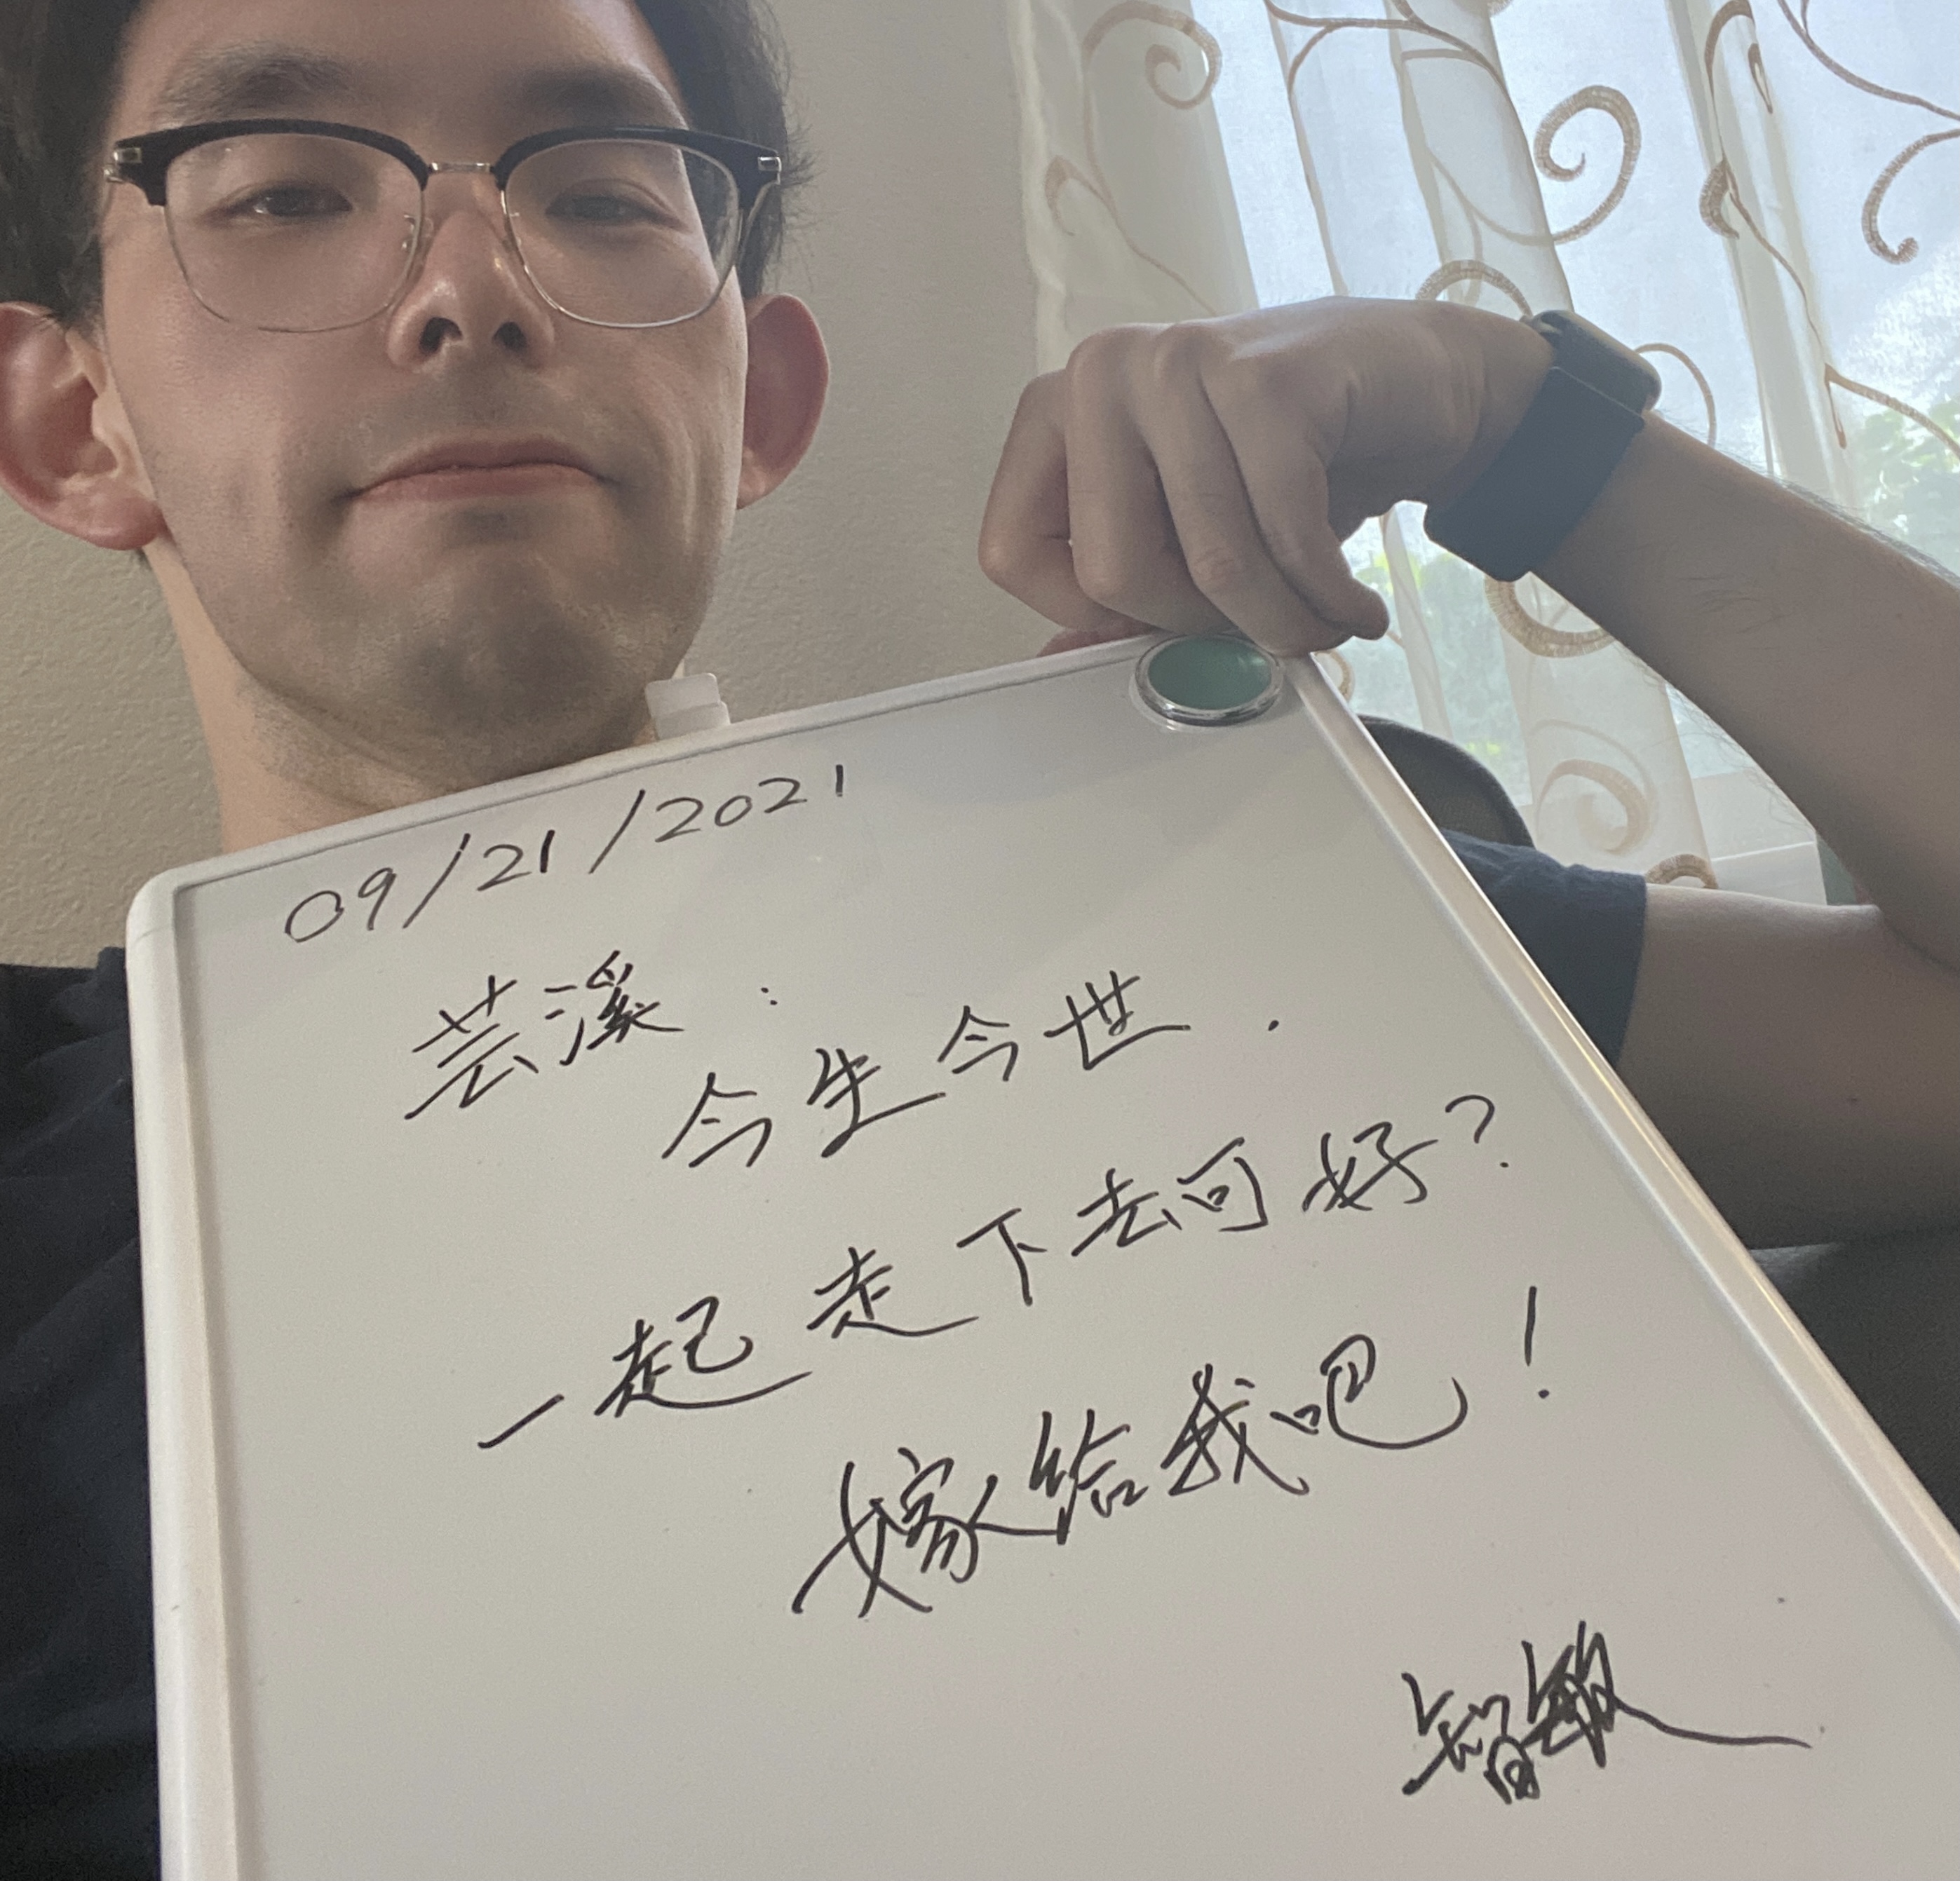 09/21/2021
芸溪：
今生今世.
一起走下去可好?
嫁给我吧!
智敏